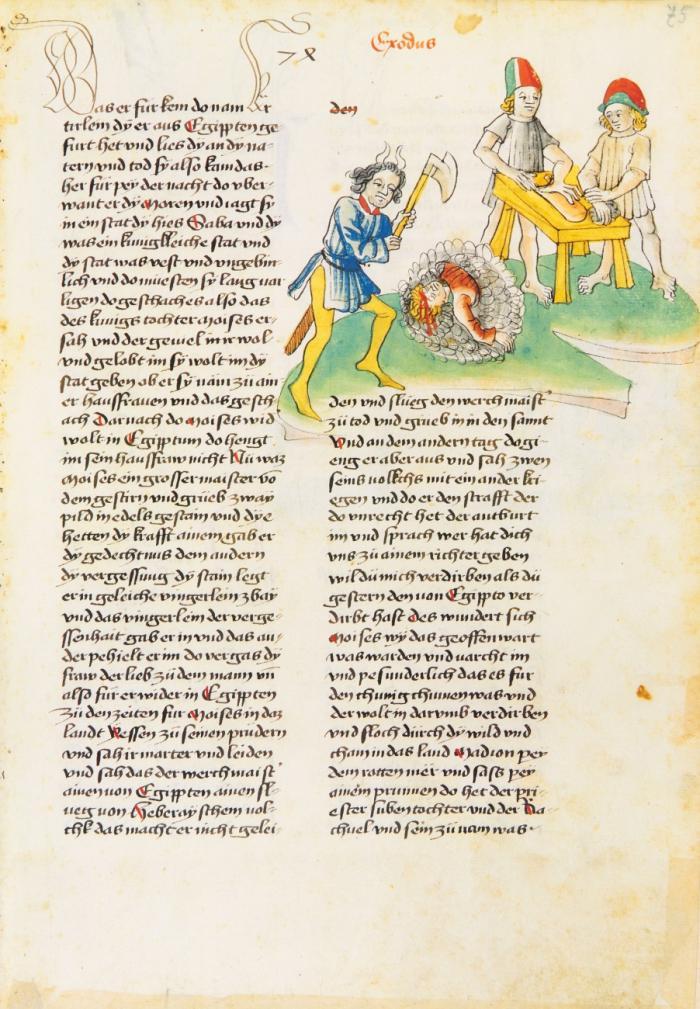 75
Exodus
Was er fur kem do nam Er
tirlem dÿ er aus Egippten ge
furt het vnd lies dÿ an dÿ na
tern vnd tod sÿ also kam das
her fur pey der nacht do vber
want er dÿ Moren vnd iagt sÿ
in ein stat dÿ hies Saba vnd dÿ
was ein kunigkleiche stat vnd
dÿ stat was vest vnd
lich vnd do muesten sÿ lang
ligen do geschach es also das
des kunigs tochter Moises er
sah vnd der geuiel im wol
vnd gelobt im sÿ wolt im dÿ
stat geben ob er sÿ näm zü ain
er haussfrauen vnd das gesch
ach Darnach do Moises wid
wolt in Egipptum do hengt
im sein haussfraw nicht Nü waz
Moises ein grosser maister vo
dem gestirn vnd grüeb zwaÿ
pild in edels gestain vnd dÿe
hetten dÿ krafft ainem gab er
dÿ gedechtnus dem andern
dÿ vergessung dÿ stain legt
er in geleiche vingerlein zbaÿ
vnd das vingerlein der verge
ssenhait gab er in vnd das an
der pehielt er im do vergas dÿ
fraw der lieb zü dem mann vn
also für er wider in Egippten
Zü den zeiten für Moises in daz
landt Iessen zü seinen prüdern
vnd sah ir marter vnd leiden
vnd sah das der werchmaist
ainer von Egippten ainen sl
ueg von Heberaÿschem vol
chk das macht er nicht gelei
den
den vnd slueg den werchmaist
zü tod vnd grueb in in den sannt
Vnd an dem andern tag do gi
eng er aber aus vnd sah zwen
seins volkchs mit ein ander kri
egen vnd do er den strafft der
do vnrecht het der antburt
im vnd sprach wer hat dich
vns zü ainem richter geben
wildu mich verdirben als dü
gestern den von Egippto ver
dirbt hast Des wundert sich
Moises wÿ das geoffenwart
was warden vnd varcht im
vnd pesunderlich das es für
den chunig chumen was vnd
der wolt in darumb verdirben
vnd floch durch dÿ wild vnd
cham in das land Madion pey
dem rotten mer vnd sass pey
ainem prunnen do het der pri
ester siben tochter vnd der Ra
chuel vnd sein zü nam was